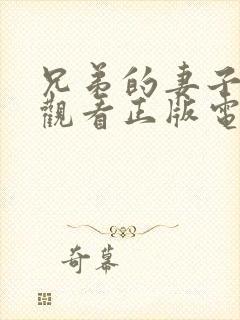 兄弟的妻子
觀看正版電
奇幕